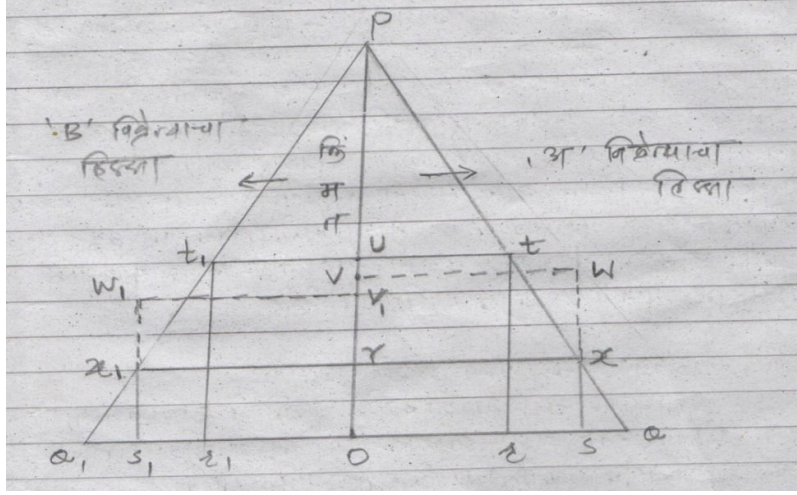 P
'B' विक्रेत्याचा
हिस्सा
किं
म
त
'अ' विक्रेत्याचा
हिस्सा
t₁ U t
W₁ V W
V₁
x₁ r x
Q₁ S₁ r₁ O r S Q